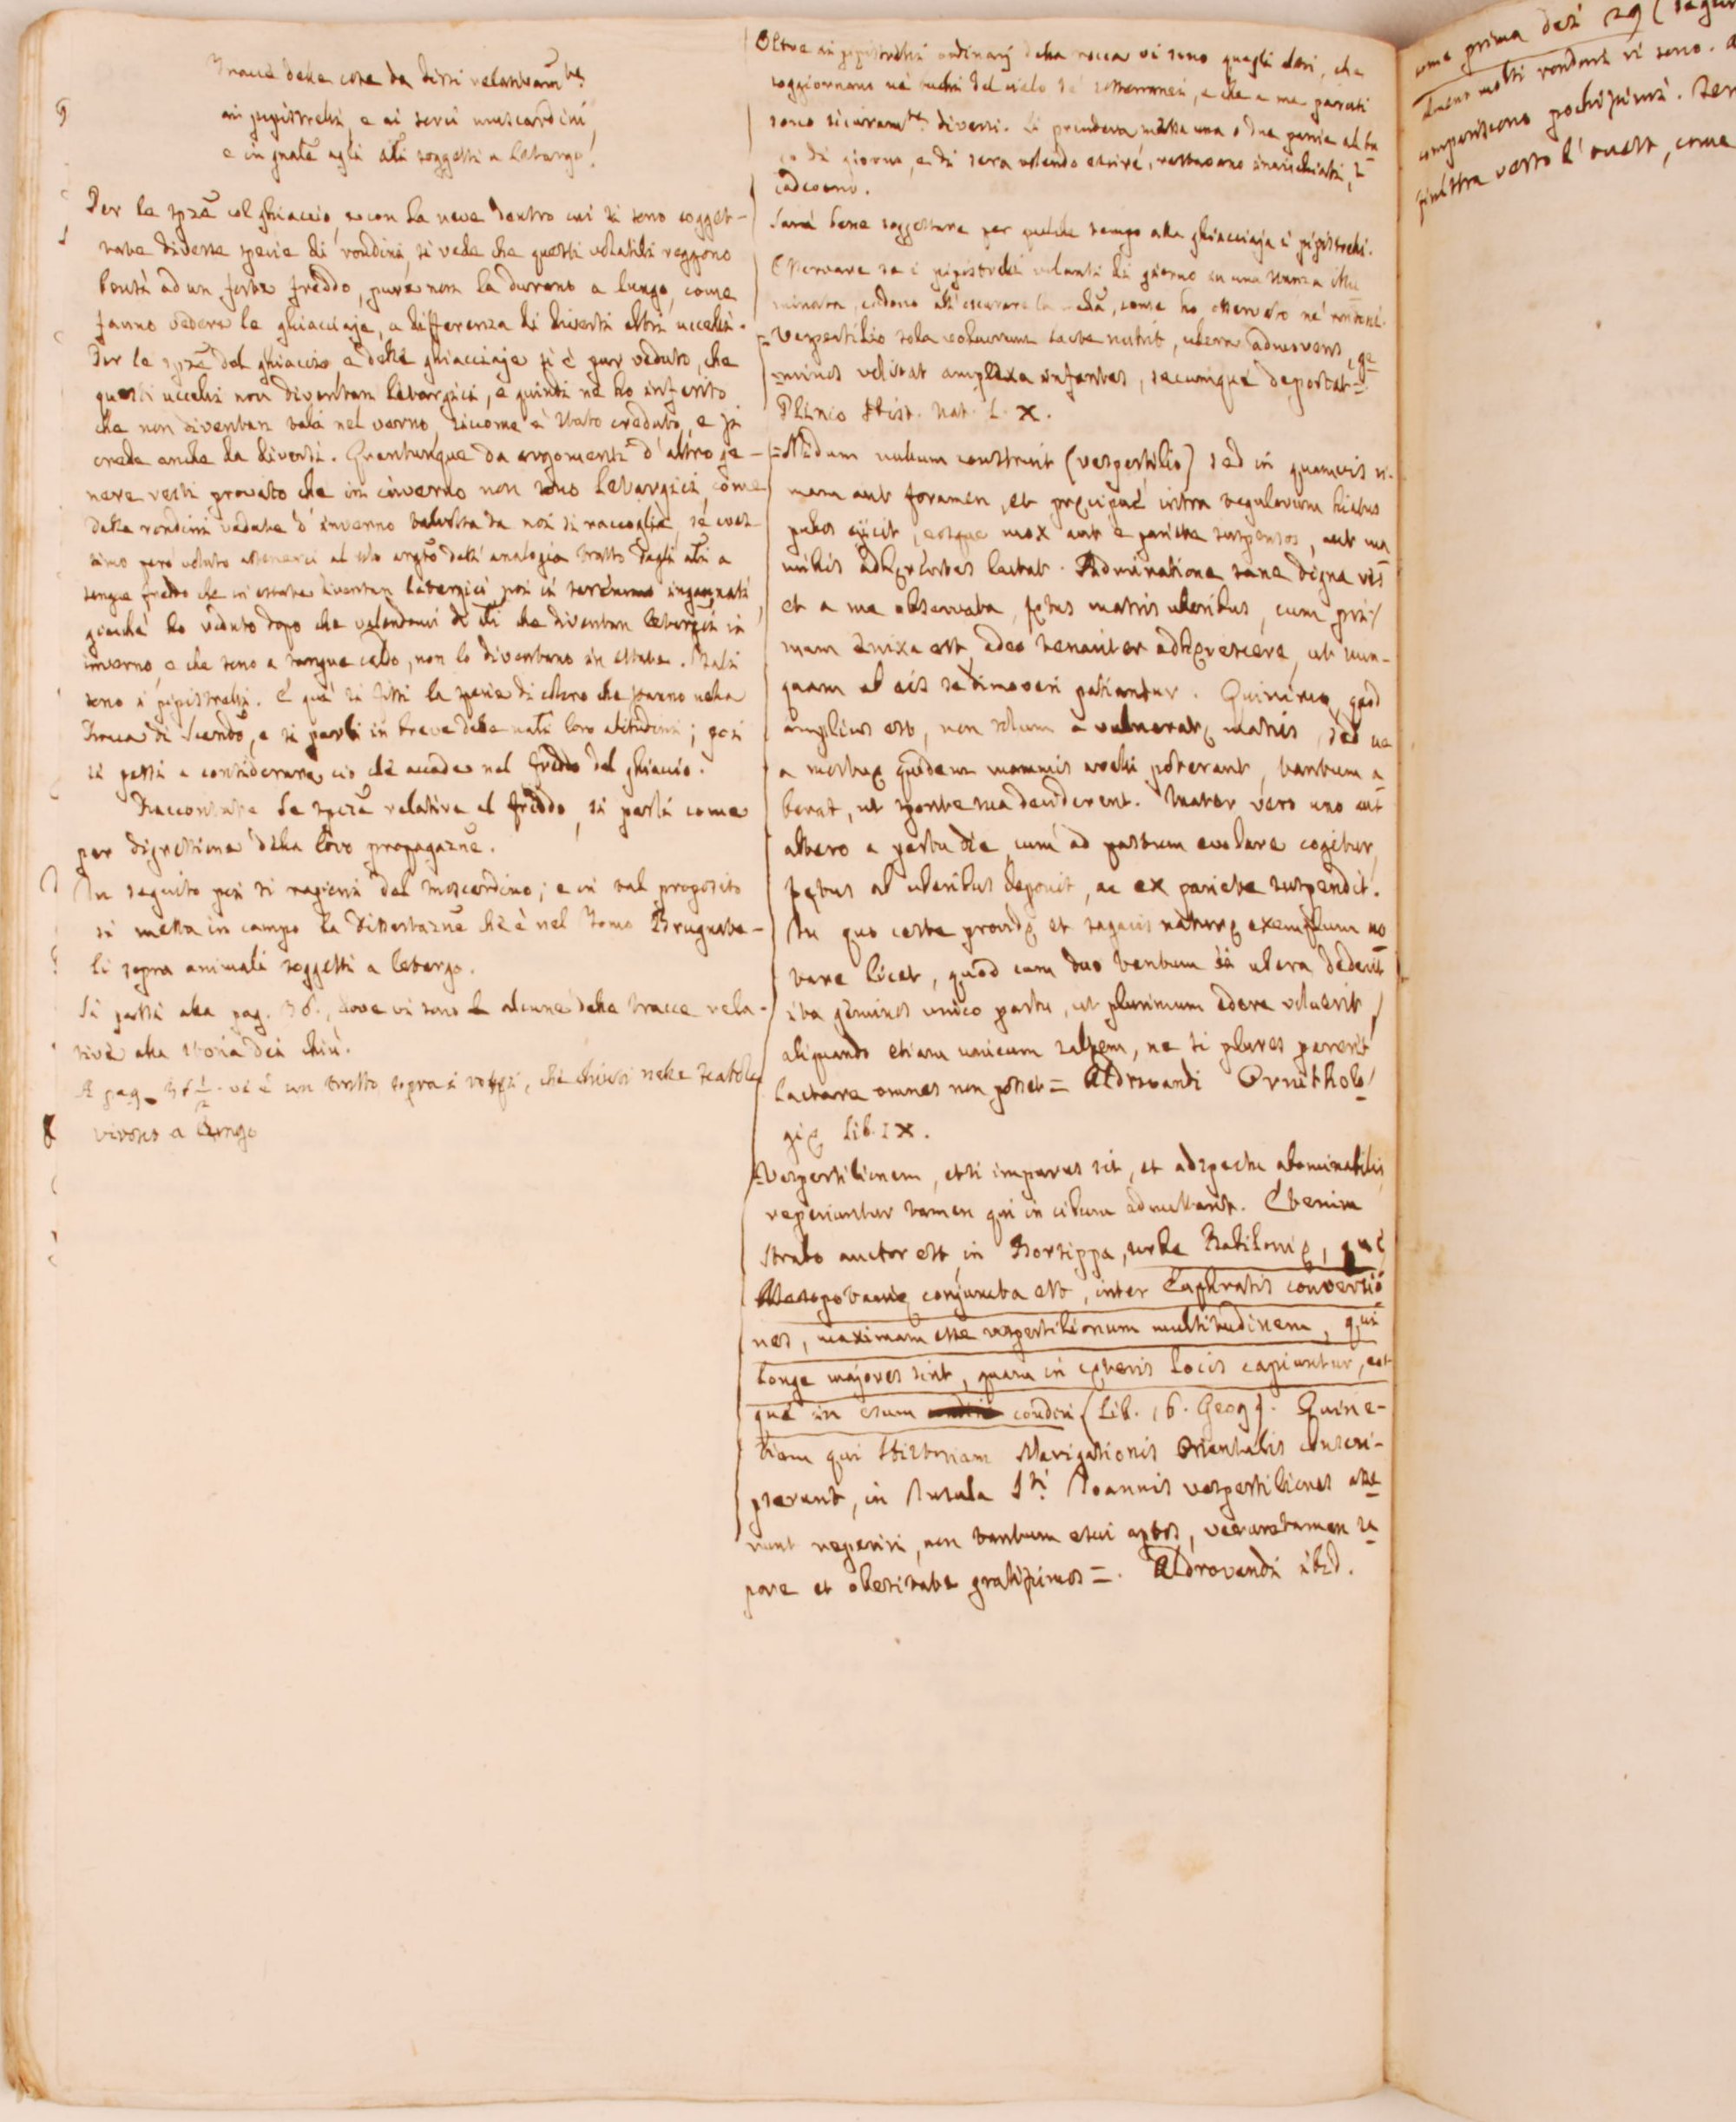 Tracce delle cose da dirsi relativam.te
ai pipistrelli, e ai sorci muscardini,
e in gnale agli altri soggetti a letargo.
Per le spze col ghiaccio, o con la neve dentro cui si sono sogget-
tate diverse specie di rondini, si vede che questi volatili reggono
bensì ad un forte freddo, pure non la durano a lungo, come
fanno vedere le ghiacciaje, a differenza di diversi altri uccelli.
Per le spze del ghiaccio, e delle ghiacciaje si è pur veduto, che
questi uccelli non diventan letargici, e quindi ne ho inferito
che non diventan tali nel verno siccome è stato creduto, e si
crede anche da diversi. Quantunque da argomenti d'altro ge-
nere resti provato che in inverno non sono letargici, come
dalle rondini vedute d'inverno talvolta da noi si raccoglie, se aves-
simo però voluto attenerci al solo argto dell'analogia tratto dagli altri a
sangue freddo che in estate diventan letargici, poi ci saremmo ingannati,
giacchè ho veduto dopo che valendomi di altri che diventan letargici in
inverno, e che sono a sangue caldo, non lo diventano in estate. Tali
sono i pipistrelli. E quì si dissi la specie di coloro che stanno nella
Rocca di Scandno, e si parli in breve delle nali loro abitudini; poi
si passi a considerare ciò che accade nel freddo del ghiaccio.
Raccontate le spezze relative al freddo, si parli come
per digressione della loro propagazne.
In seguito poi si ragioni del moscardino; e in tal proposito
si metta in campo la dissertazne che è nel Tomo Brugnate-
li sopra animali soggetti a letargo.
Si passi alla pag. 36., dove vi sono alcune delle tracce rela-
tive alla storia dei chiù.
A pag. 36 1/2. vi è un tratto sopra i rospi, che chiusi nelle scatole
vivono a lungo
Oltre ai pipistrelli ordinarj della rocca vi sono quegli altri, che
soggiornano ne' buchi del cielo de' sotterranei, e che a me parvuti
sono sicuram.te diversi. Li prendeva messa una o due panie al bu
co di giorno, e di sera volendo escire, restavano invischiati, e
cadeano.
Sarà bene soggettare per qualche tempo alla ghiacciaja i pipistrelli.
Osservare se i pipistrelli volanti di giorno in una stanza illu
minata, cadono all'oscurare la, come ho osservato ne' rondoni.
=Vespertilio sola volucrum lacte nutrit, ubera admovens, ge
minos volitat amplexa infantes, secumque deportat=
Plinio Hist. Nat. L. X.
=Nidum nullum construit (vespertilio) sed in quamvis ri-
mam aut foramen, et præcipuè intra tegularum hiatus
pullos ejicit, eosque mox aut e pariete suspensos, aut ma
millis adhærentes lactat. Admiratione sane digna res
et a me observata, fœtus matris uberibus, cum pri-
mum enixa est, adeo tenaciter adhærescere, ut nun-
quam ab eis se dimoveri patiantur. Quinimo, quod
amplius est, non solum a vulneratæ matris, sed ne
a mortuæ quidem mammis avelli poterant, tantum a
berat, ut sponte sua deciderent. Mater vero uno aut
altero a partu die, cum ad pastum evolare cogitur,
fœtus ab uberibus deponit, ac ex pariete suspendit.
In quo certe providæ et sagacis naturæ exemplum no
tare licet, quod cum duo tantum ei ubera dederit
ita geminos unico partu, ut plurimum edere voluerit,
aliquando etiam unicum saltem, ne si plures pareret
lactare omnes non posset= Aldrovandi Ornitholo
giæ Lib. IX.
=Vespertilionem, etsi impurus sit, et adspectu abominabilis,
reperiuntur tamen qui in cibum admittant. Etenim
Strabo auctor est, in Borsippa, urbe Babiloniæ, quæ
Mesopotamiæ conjuncta est, inter Euphratis conversio
nes, maximam esse vespertilionum multitudinem, qui
longe majores sint, quam in cæteris locis capiuntur, eos
que in esum condiri (Lib. 16. Geog). Quine-
tiam qui Historiam Navigationis Orientalis conscri-
pserunt, in Insula S.ti Joannis vespertiliones asse
runt reperiri, non tantum esui aptos, verumtamen sa
pore et obesitate gratissimos=. Aldrovandi ibid.
come prima deli 29
molti rondoni vi sono.
compariscono pochissimi.
finestra verso l'ovest, come